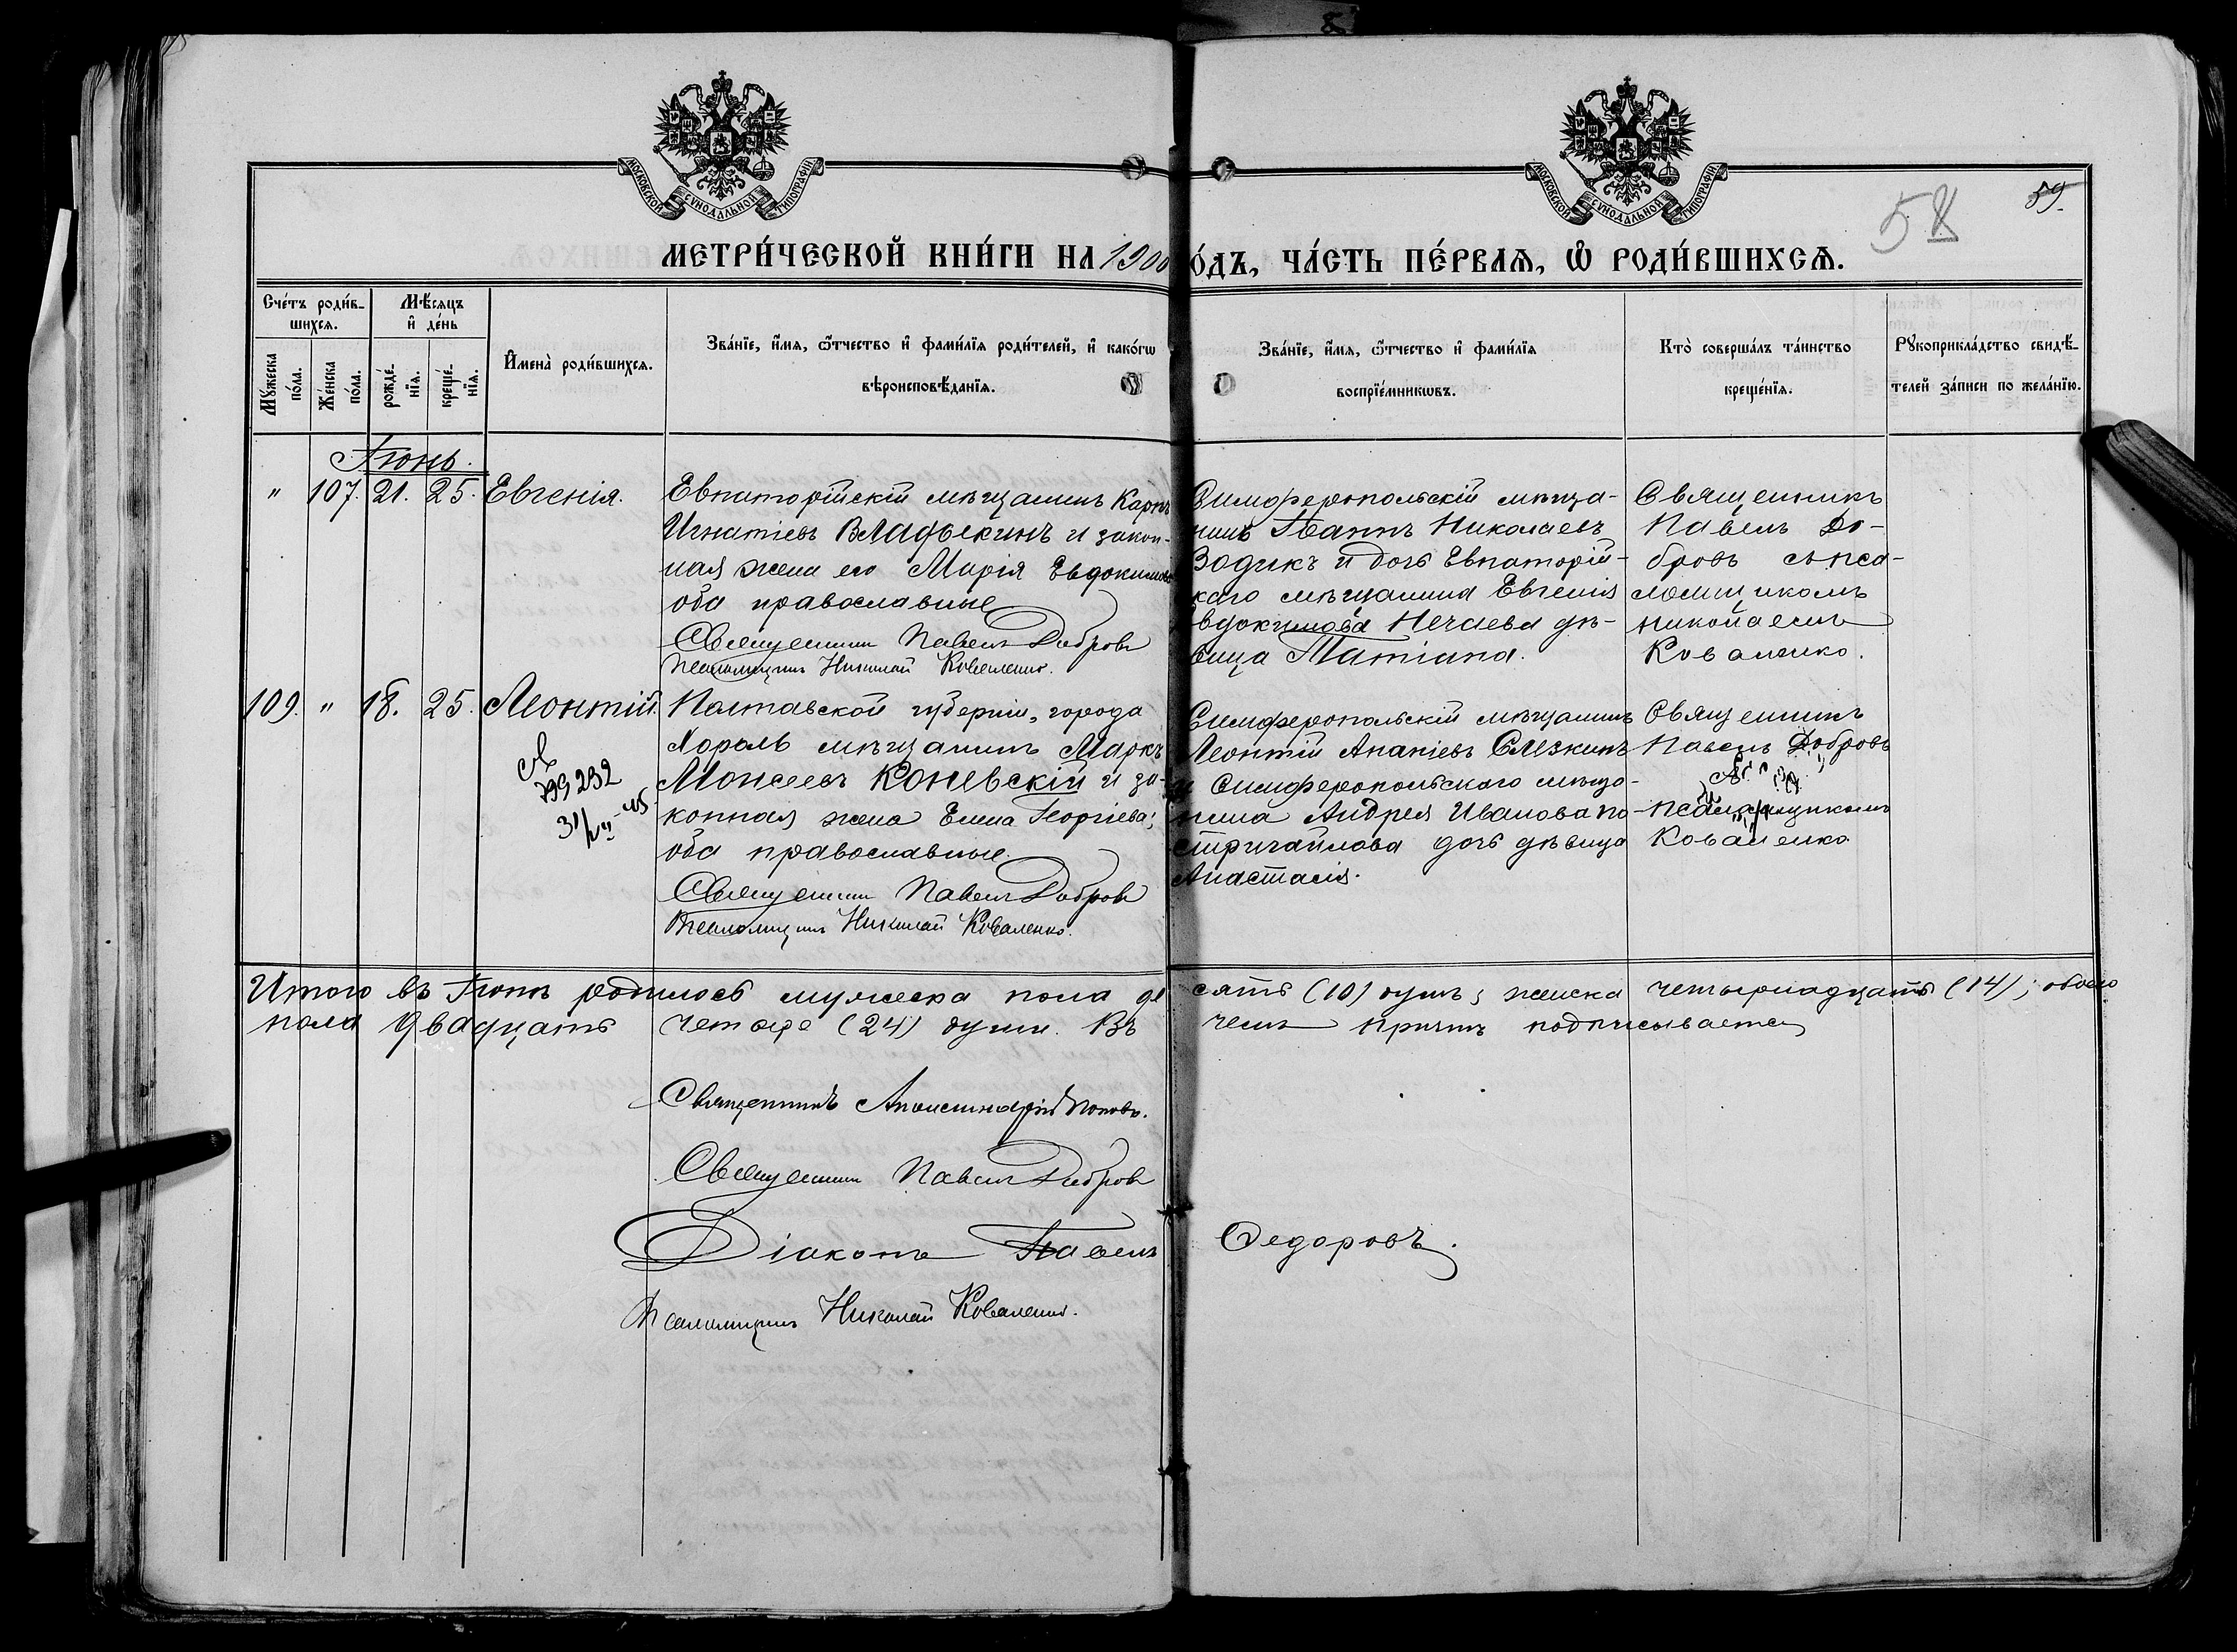 МОСКОВСКОЙ СѴНОДАЛЬНОЙ ТИПОГРАФІИ
МОСКОВСКОЙ СѴНОДАЛЬНОЙ ТИПОГРАФІИ
58
59.
МЕТРИ́ЧЕСКОЙ КНИ́ГИ НА 1900
О́ДЪ, ЧА́СТЬ ПЕ́РВАѦ, Ѡ РОДИ́ВШИХСѦ.
Сче́тъ роди́в-
шихсѧ.
Мѣ́сѧцъ
и҆ де́нь
Мꙋ́жеска
по́ла.
Же́нска
по́ла.
рожде́-
нїѧ.
креще́-
нїѧ.
И҆мена̀ роди́вшихсѧ.
Зва́нїе, и҆́мѧ, ѻ҆́тчество и҆ фами́лїѧ роди́телей, и҆ како́гѡ
вѣроисповѣ́данїѧ.
Зва́нїе, и҆́мѧ, ѻ҆́тчество и҆ фами́лїѧ
воспрїе́мникѡвъ.
Кто̀ соверша́лъ та́инство
креще́нїѧ.
Рꙋкоприкла́дство свидѣ́-
телей за́писи по жела́нїю.
Іюнь.
" 107. 21. 25. Евгенія.
Евпаторійскій мѣщанинъ Карпъ
Игнатіевъ Владыкинъ и закон-
ная жена его Марія Евдокимова
оба православные
Священникъ Павелъ Добровъ
Псаломщикъ Николай Коваленко.
Симферопольскій мѣща-
нинъ Іваннъ Николаевъ
Зодикъ и дочь Евпаторій-
скаго мѣщанина Евгенія
Евдокимова Нечаева дѣ-
вица Татіана.
Священникъ
Павелъ До-
бровъ съ пса-
ломщикомъ
Николаемъ
Коваленко.
109. " 18. 25. Леонтій.
799232
Полтавской губерніи, города
Хороль мѣщанинъ Маркъ
Моисеевъ Коневскій и за-
конная жена Елена Георгіева;
оба православные.
Священникъ Павелъ Добровъ
Псаломщикъ Николай Коваленко.
Симферопольскій мѣщанинъ
Леонтій Ананіевъ Слезкинъ
и Симферопольскаго мѣща-
нина Андрея Иванова По-
стригайлова дочь дѣвица
Анастасія.
Священникъ
Павелъ Добровъ
псаломщикомъ
Коваленко
Итого въ Іюнѣ родилось мужеска пола де
сять (10) душъ; женска четырнадцать (14); обоего
пола двадцать четыре (24) души. Въ
чемъ причтъ подписывается
Священникъ Аполлинарій Поповъ.
Священникъ Павелъ Добровъ
Діаконъ Павелъ Федоровъ.
Псаломщикъ Николай Коваленко.